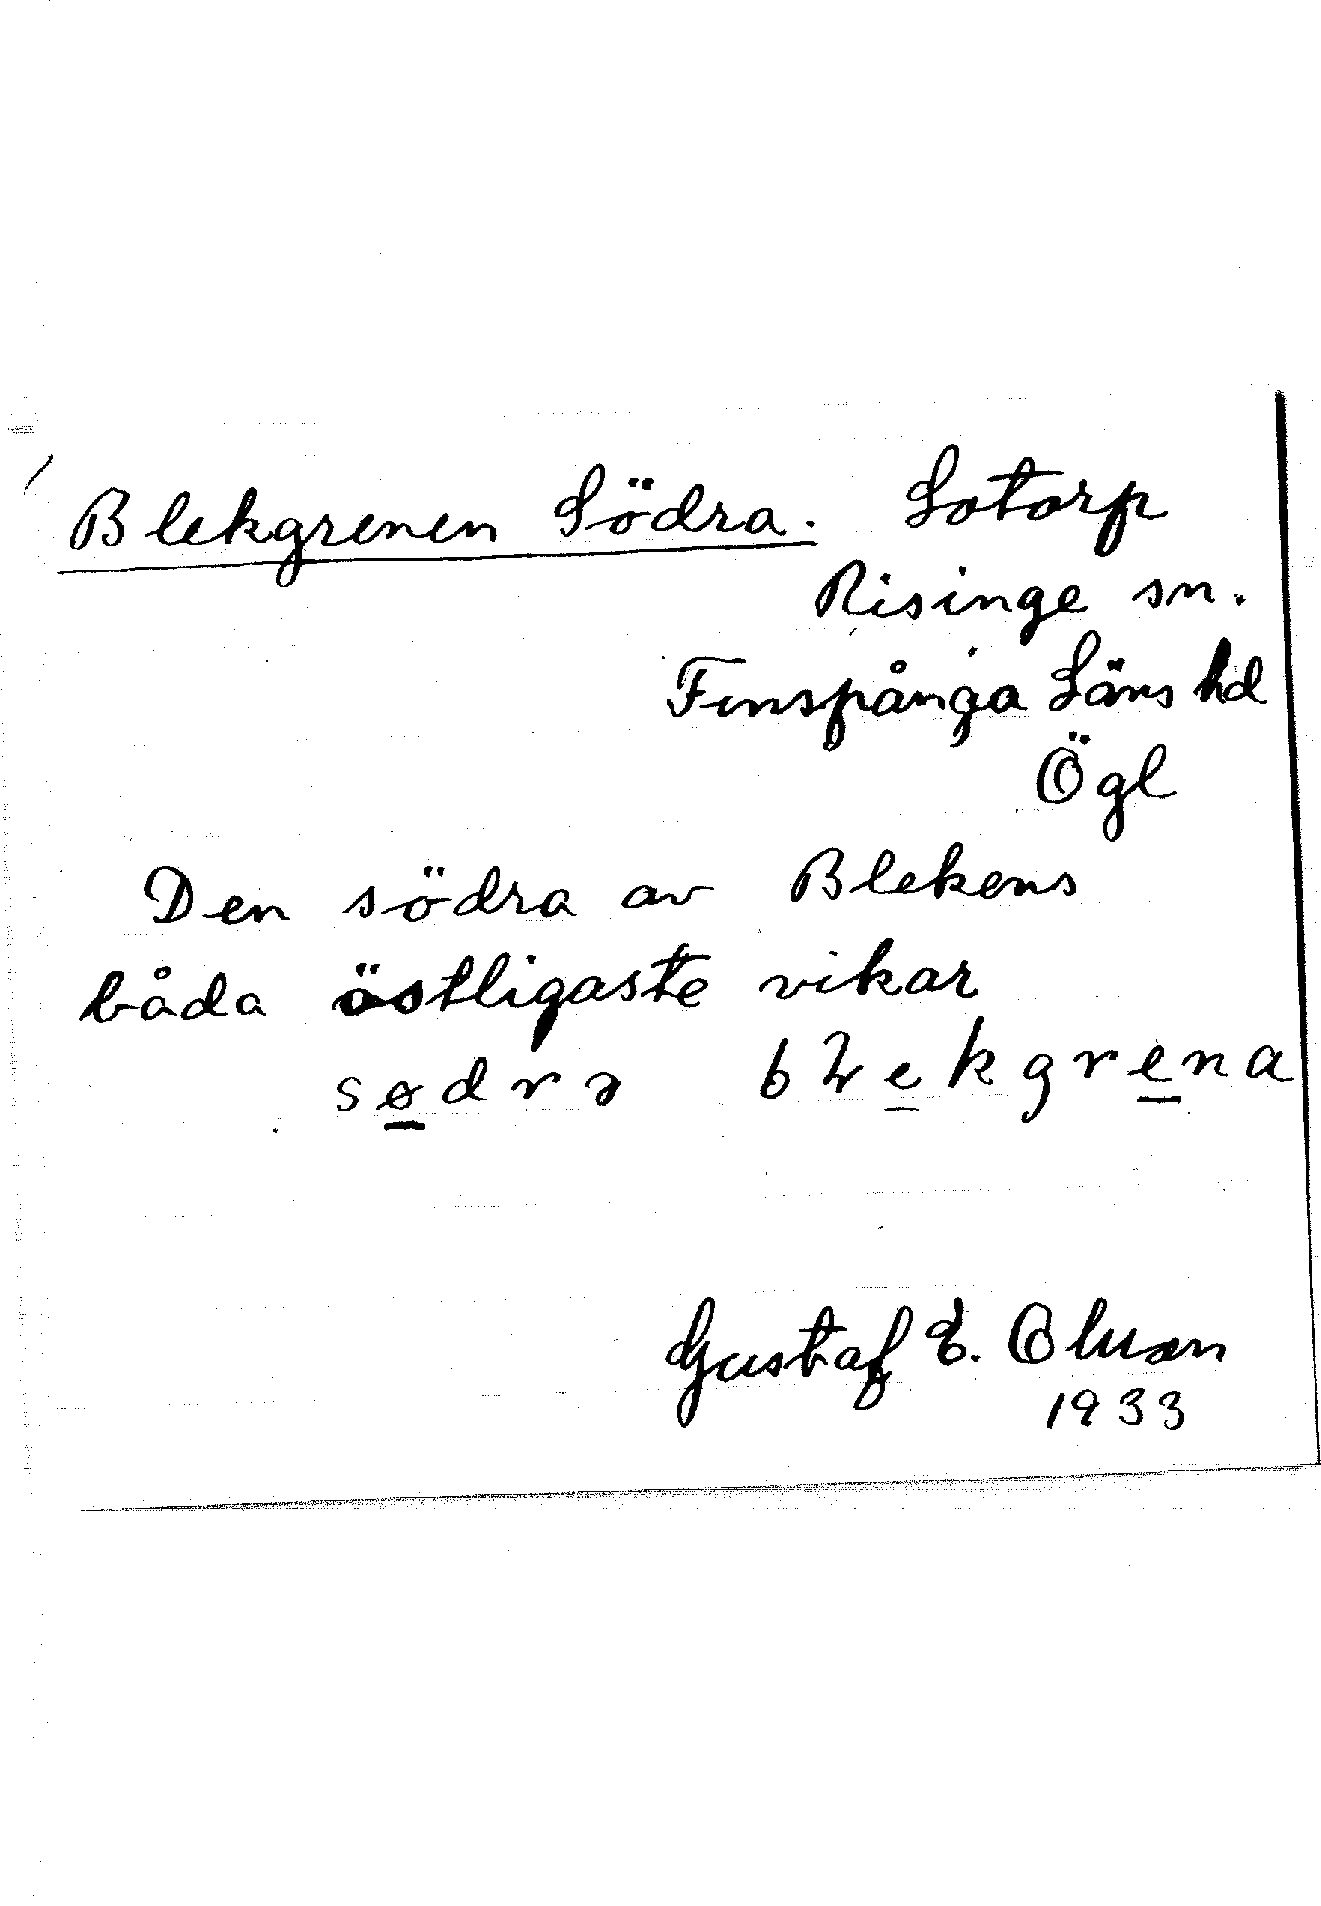 Blekgrenen Södra. Lotorp
Risinge sn.
Finspånga Läns hd
Ögl
Den södra av Blekens
båda östligaste vikar
sødrə blekgrena
Gustaf E.
1933